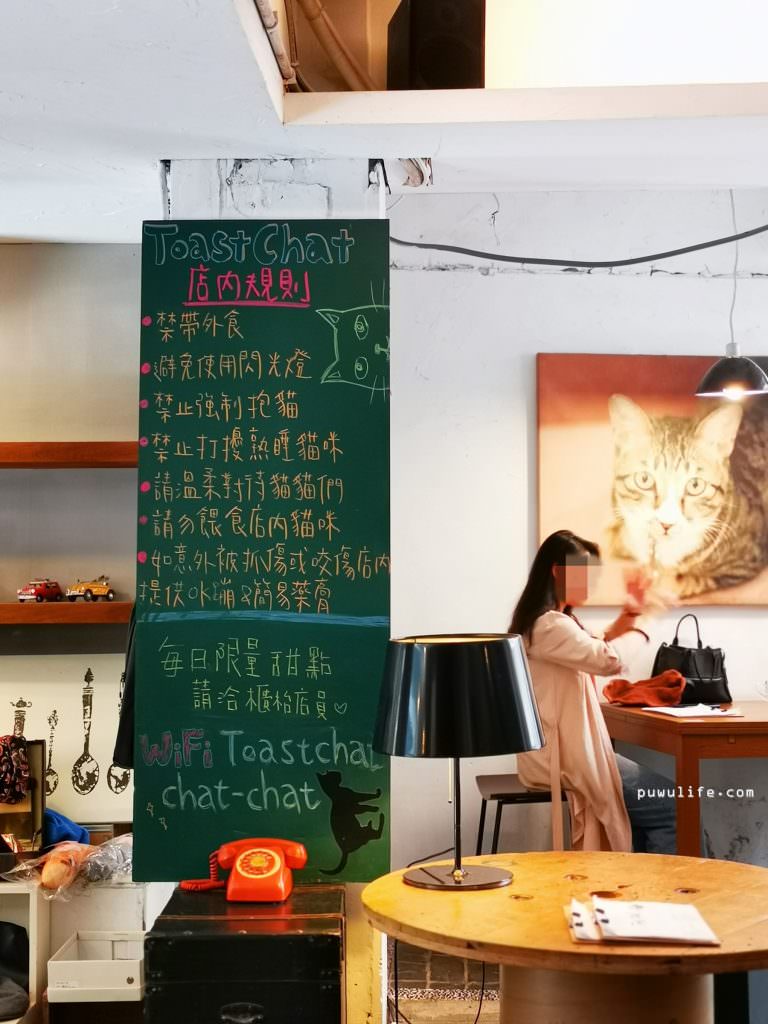 ToastChat
店內規則
禁帶外食
避免使用閃光燈
禁止強制抱貓
禁止打擾熟睡貓咪
請溫柔對待貓貓們
請勿餵食店內貓咪
如意外被抓傷或咬傷店內
提供OK蹦&簡易藥膏
每日限量甜點
請洽櫃枱店員♡
WiFi Toastchat
chat-chat
puwulife.com